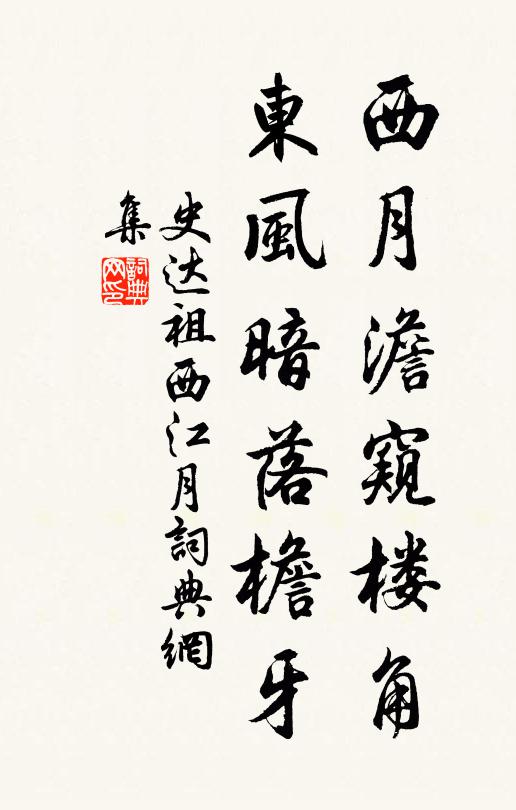 西月澹窺楼角
東風暗落檐牙
史达祖西江月詞典網
集
詞典
网印